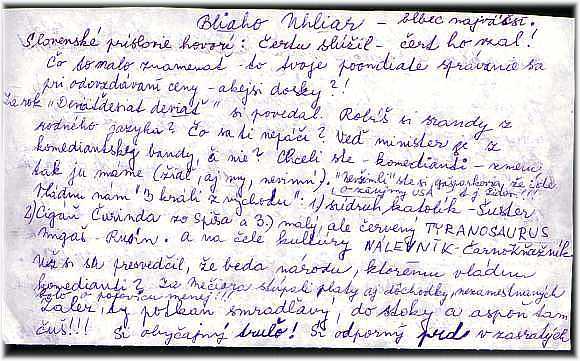 Blaho Uhliar – blbec najväčší.
Slovenské príslovie hovorí: Čertu slúžil – čert ho vzal!
Čo to malo znamenať – to tvoje poondiate správanie sa
pri odovzdávaní ceny – akejsi dosky?!
Za rok "Deväťdesiat deviať" si povedal. Robíš si srandy z
rodného jazyka? Čo sa ti nepáči? Veď minister je z
komediantskej bandy, či nie? Chceli ste – komedianti – zmenu,
tak ju máme (žiaľ, aj my, nevinní).
o záujmy USA
Vládnu nám "3 králi z východu". 1) katolík – Šuster
2) Cigáň Čurinda zo Spiša a 3.) malý, ale červený TYRANOSAURUS
Migaš – Rusín. a na čele kultúry NÁLEVNÍK – Čarnokňažník
Už si sa presvedčil, že beda národu, ktorému vládnu
komedianti? Za Mečiara stúpali platy aj dôchodky, nezamestnaných
bolo o polovicu menej!!!
Zalez, ty potkan smradľavý, do stoky a aspoň tam
čuš!!! Si obyčajný truľo! Si odporný prd v zasratých